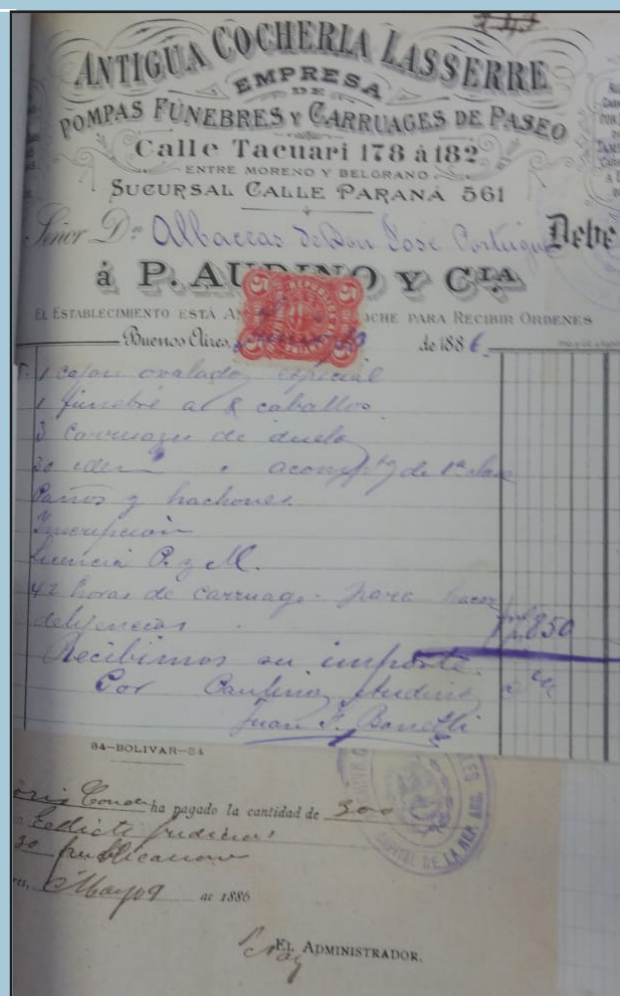 ANTIGUA COCHERIA LASSERRE
EMPRESA
DE
POMPAS FÚNEBRES Y CARRUAGES DE PASEO
Calle Tacuari 178 á 182
ENTRE MORENO Y BELGRANO
SUCURSAL CALLE PARANÁ 561
Señor Dn Albaceas de Don Jose Debe
á P. AUDINO Y CIA
EL ESTABLECIMIENTO ESTÁ OCHE PARA RECIBIR ORDENES
Buenos Aires, de 1886
1 cajon ovalado especial
1 funebre a 8 caballos
3 carruages de duelo
30 idem " acompto de 1a clase
Paños y hachones
Inscripcion
Licencia P. y M.
42 horas de carruage para hacer
deligencias 1,850
Recibimos su importe
Por Paulino Audino
Juan F. Bonelli
84-BOLIVAR-84
Conde ha pagado la cantidad de 300
Edicto judicial
30 publicaciones
Mayo 9 de 1886
EL ADMINISTRADOR.